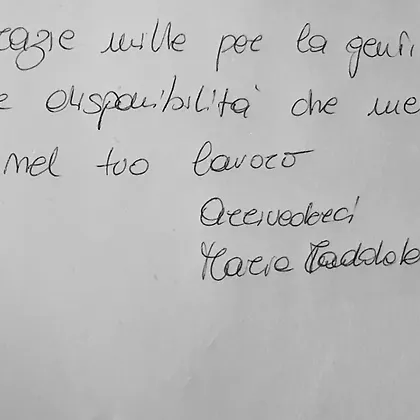 razie mille per la genti
e disponibilità che me
nel tuo lavoro
Arrivederci
Maria Maddale